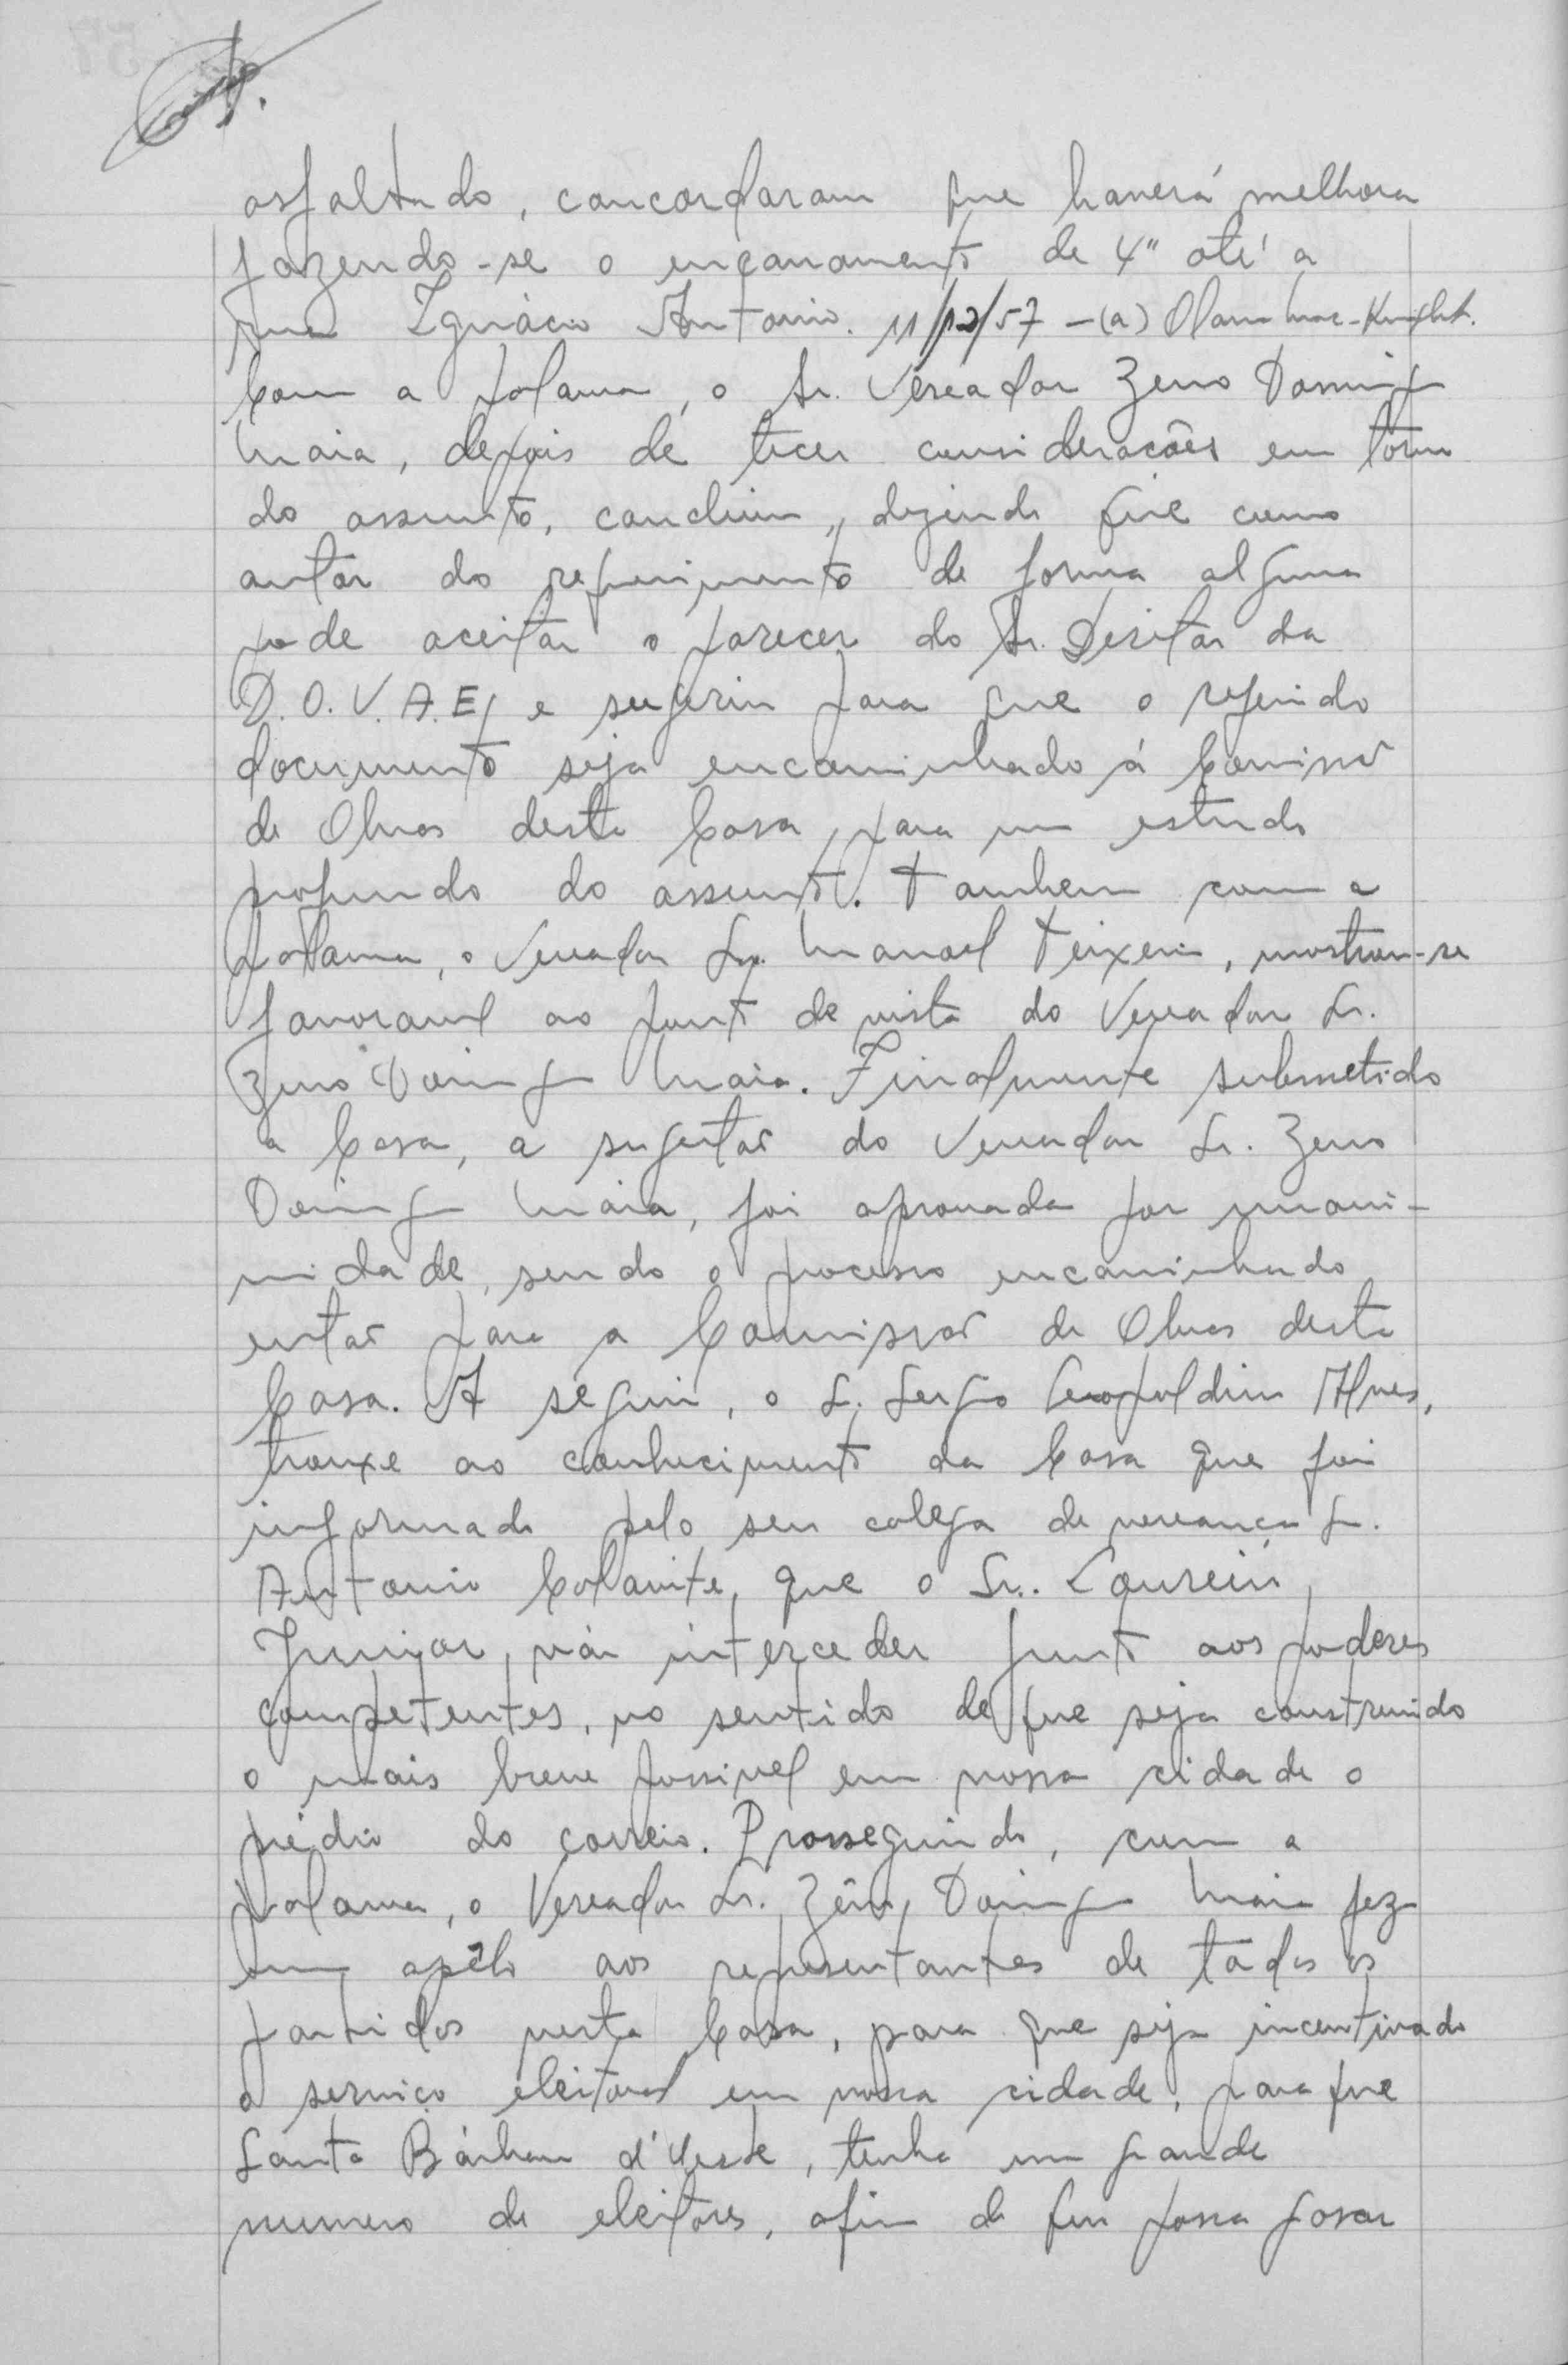 asfaltado, concordaram que haverá melhora
fazendo-se o encanamento de 4" até a
rua Ignácio Antonio. 11/12/57 - (a) Olavo Mac-Knight.
Com a palavra, o Sr. Vereador Zeno Domingos
Maia, depois de tecer considerações em tôrno
do assunto, concluiu, dizendo que como
autor do requerimento de forma alguma
pode aceitar o parecer do Sr. Diretor da
D.O.V.A.E, e sugeriu para que o referido
documento seja encaminhado á Comissão
de Obras desta Casa, para um estudo
profundo do assunto. Tambem com a
palavra, o Vereador Sr. Manoel Teixeira, mostrou-se
favoravel ao ponto de vista do Vereador Sr.
Zeno Domingos Maia. Finalmente submetido
a Casa, a sugestão do Vereador Sr. Zeno
Domingos Maia, foi aprovada por unani-
midade, sendo o processo encaminhado
então para a Comissão de Obras desta
Casa. A seguir, o Sr. Sergio Leopoldino Alves,
trouxe ao conhecimento da Casa que foi
informado pelo seu colega de vereança Sr.
Antonio Colavite, que o Sr. Loureiro
Junior, vai interceder junto aos poderes
competentes, no sentido de que seja construido
o mais breve possivel em nossa cidade o
prédio do correio. Prosseguindo, com a
palavra, o Vereador Sr. Zêno Domingos Maia fez
um apêlo aos representantes de todos os
partidos nesta Casa, para que seja incentivado
o serviço eleitoral em nossa cidade, para que
Santa Bárbara d'Oeste, tenha um grande
numero de eleitores, afim de que possa gosar